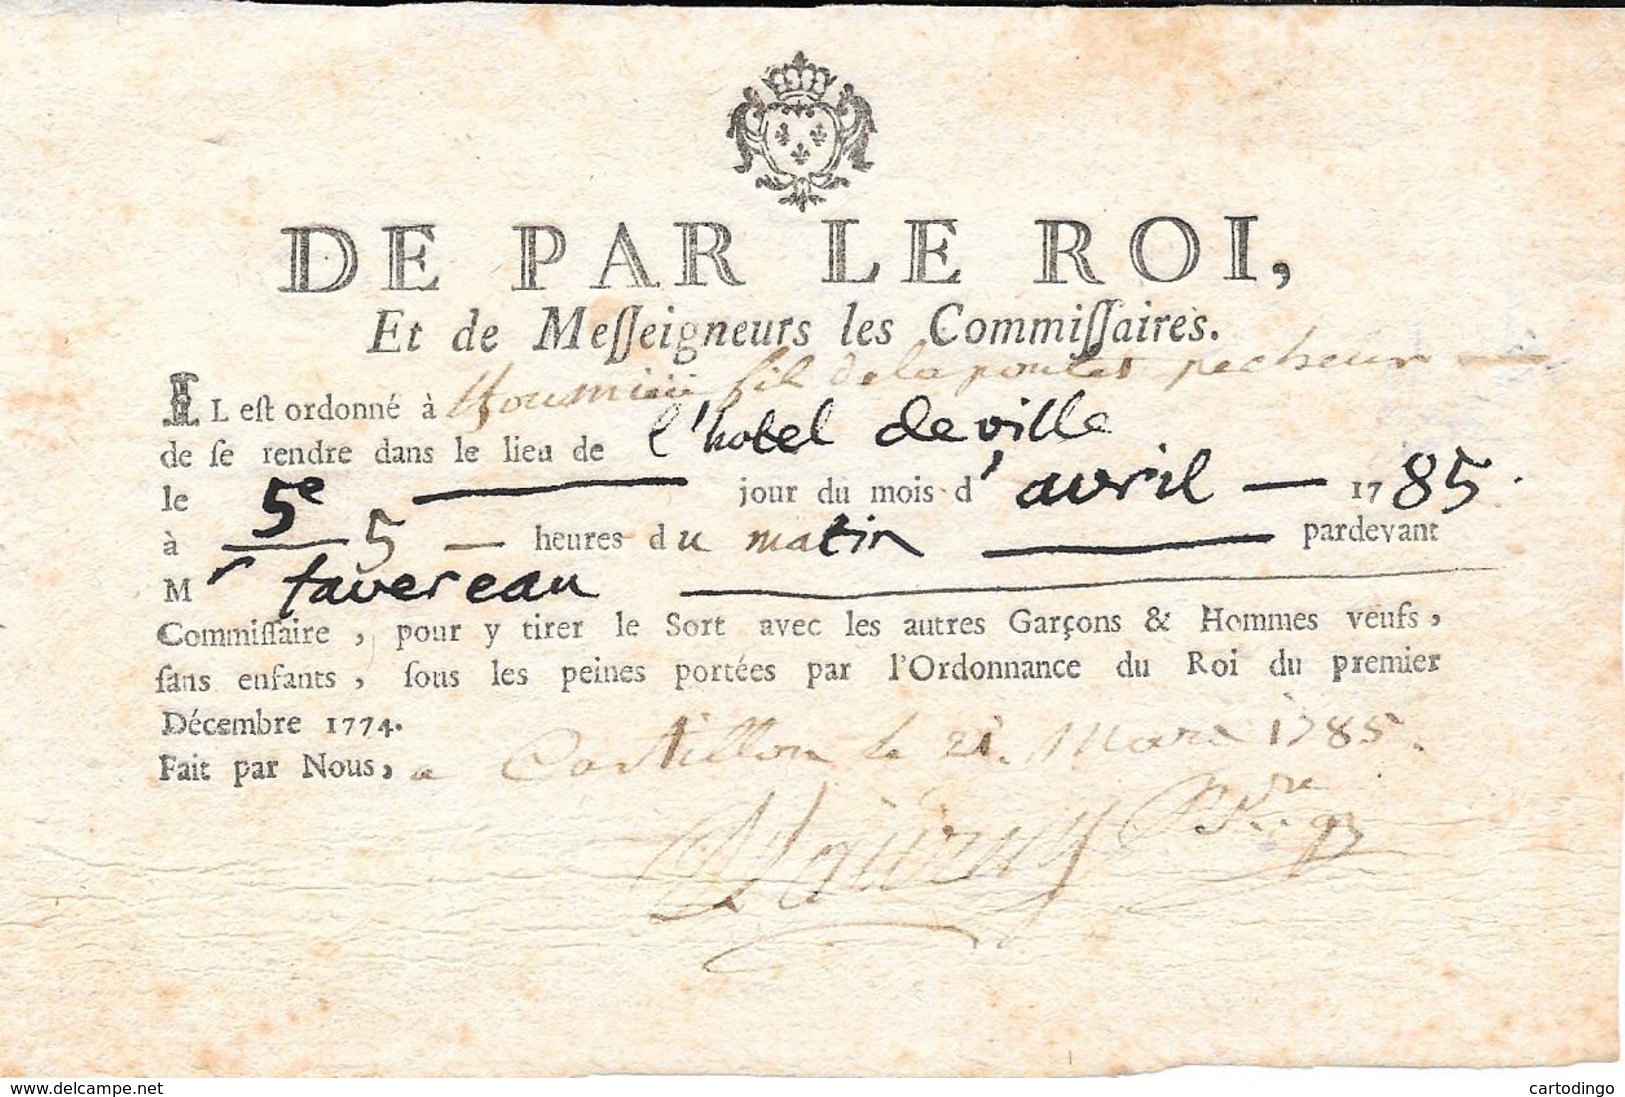 DE PAR LE ROI,
Et de Meſſeigneurs les Commiſſaires.
IL eſt ordonné à fil de la pecheur
de ſe rendre dans le lieu de l'hotel de ville
le 5e jour du mois d'avril 1785.
à 5 heures du matin pardevant
Mr tavereau
Commiſſaire, pour y tirer le Sort avec les autres Garçons & Hommes veufs,
ſans enfants, ſous les peines portées par l'Ordonnance du Roi du premier
Décembre 1774.
Fait par Nous, a Castillon le 21. Mars 1785.
www.delcampe.net
cartodingo